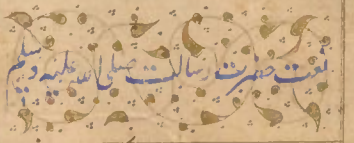 نعت حضرت رسالت صلی الله علیه وسلم